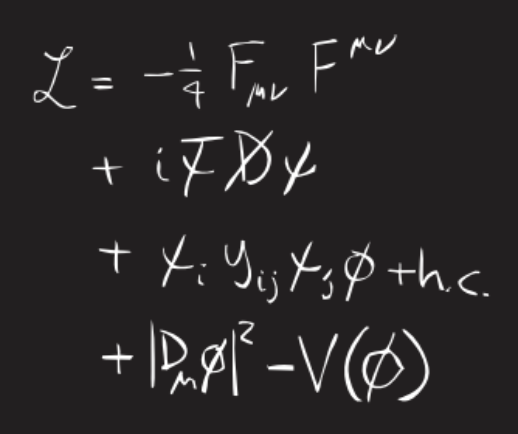 ℒ = -¼ F_μν F^μν
+ i ψ̄ D̸ ψ
+ ψ_i y_ij ψ_j ϕ + h.c.
+ |D_μ ϕ|² - V(ϕ)